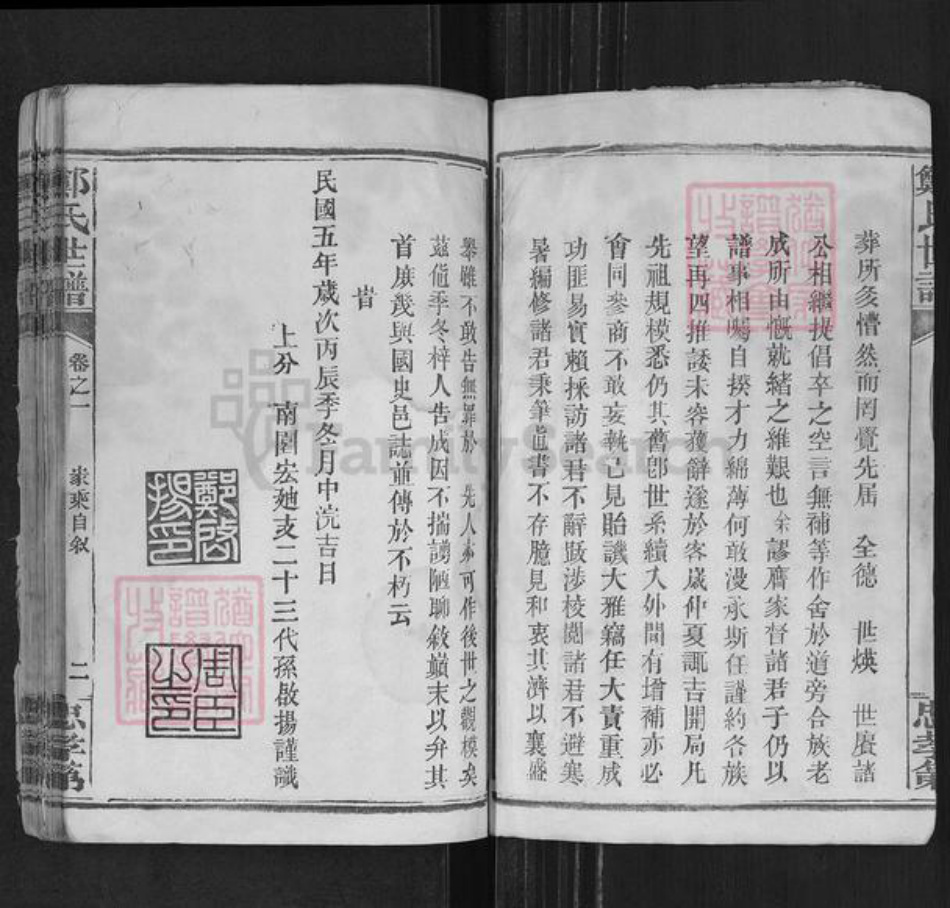 葬所多懵然而罔覺先届　全德　世煐　世賡諸
公相繼提倡卒之空言無補等作舍於道旁合族老
成所由慨就緒之維艱也余謬膺家督諸君子仍以
譜事相囑自揆才力綿薄何敢漫承斯任謹約各族
望再四推諉未容獲辭遂於客歲仲夏諏吉開局凡
先祖規模悉仍其舊卽世系續入外間有增補亦必
會同參商不敢妄執己見貽譏大雅竊任大責重成
功匪易實賴採訪諸君不辭跋涉校閱諸君不避寒
暑編修諸君秉筆直書不存臆見和衷共濟以襄盛
舉雖不敢告無罪於　先人亦可作後世之觀模矣
茲值季冬梓人告成因不揣譾陋聊敘巔末以弁其
首庶幾與國史邑誌並傳於不朽云
旹
民國五年歲次丙辰季冬月中浣吉日
上分　南園宏廸支二十三代孫啟揚謹識
鄭啟揚印
鄭氏世譜
卷之一
家乘自敘
二
忠孝第
鄭氏世譜
忠孝第
FamilySearch